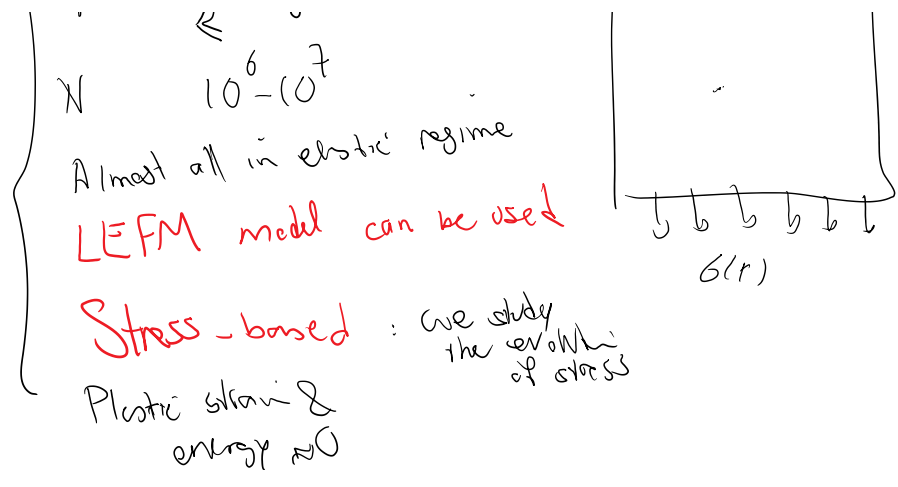 N 10^6-10^7
Almost all in elastic regime
LEFM model can be used
Stress-based : we study
the evolution
of stress
Plastic strain &
energy ≈0
σ(t)